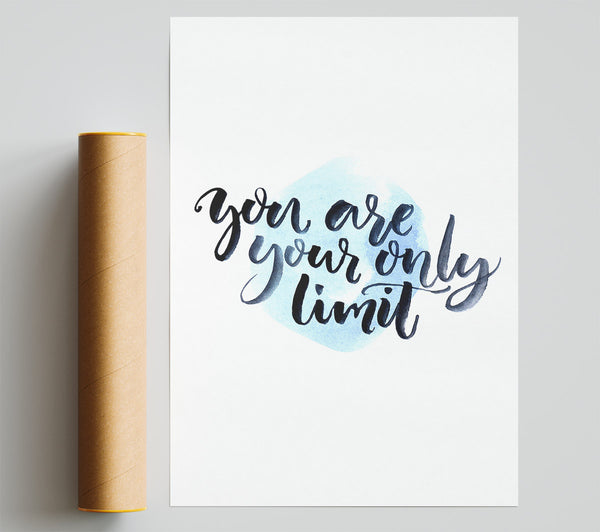 you are
your only
limit